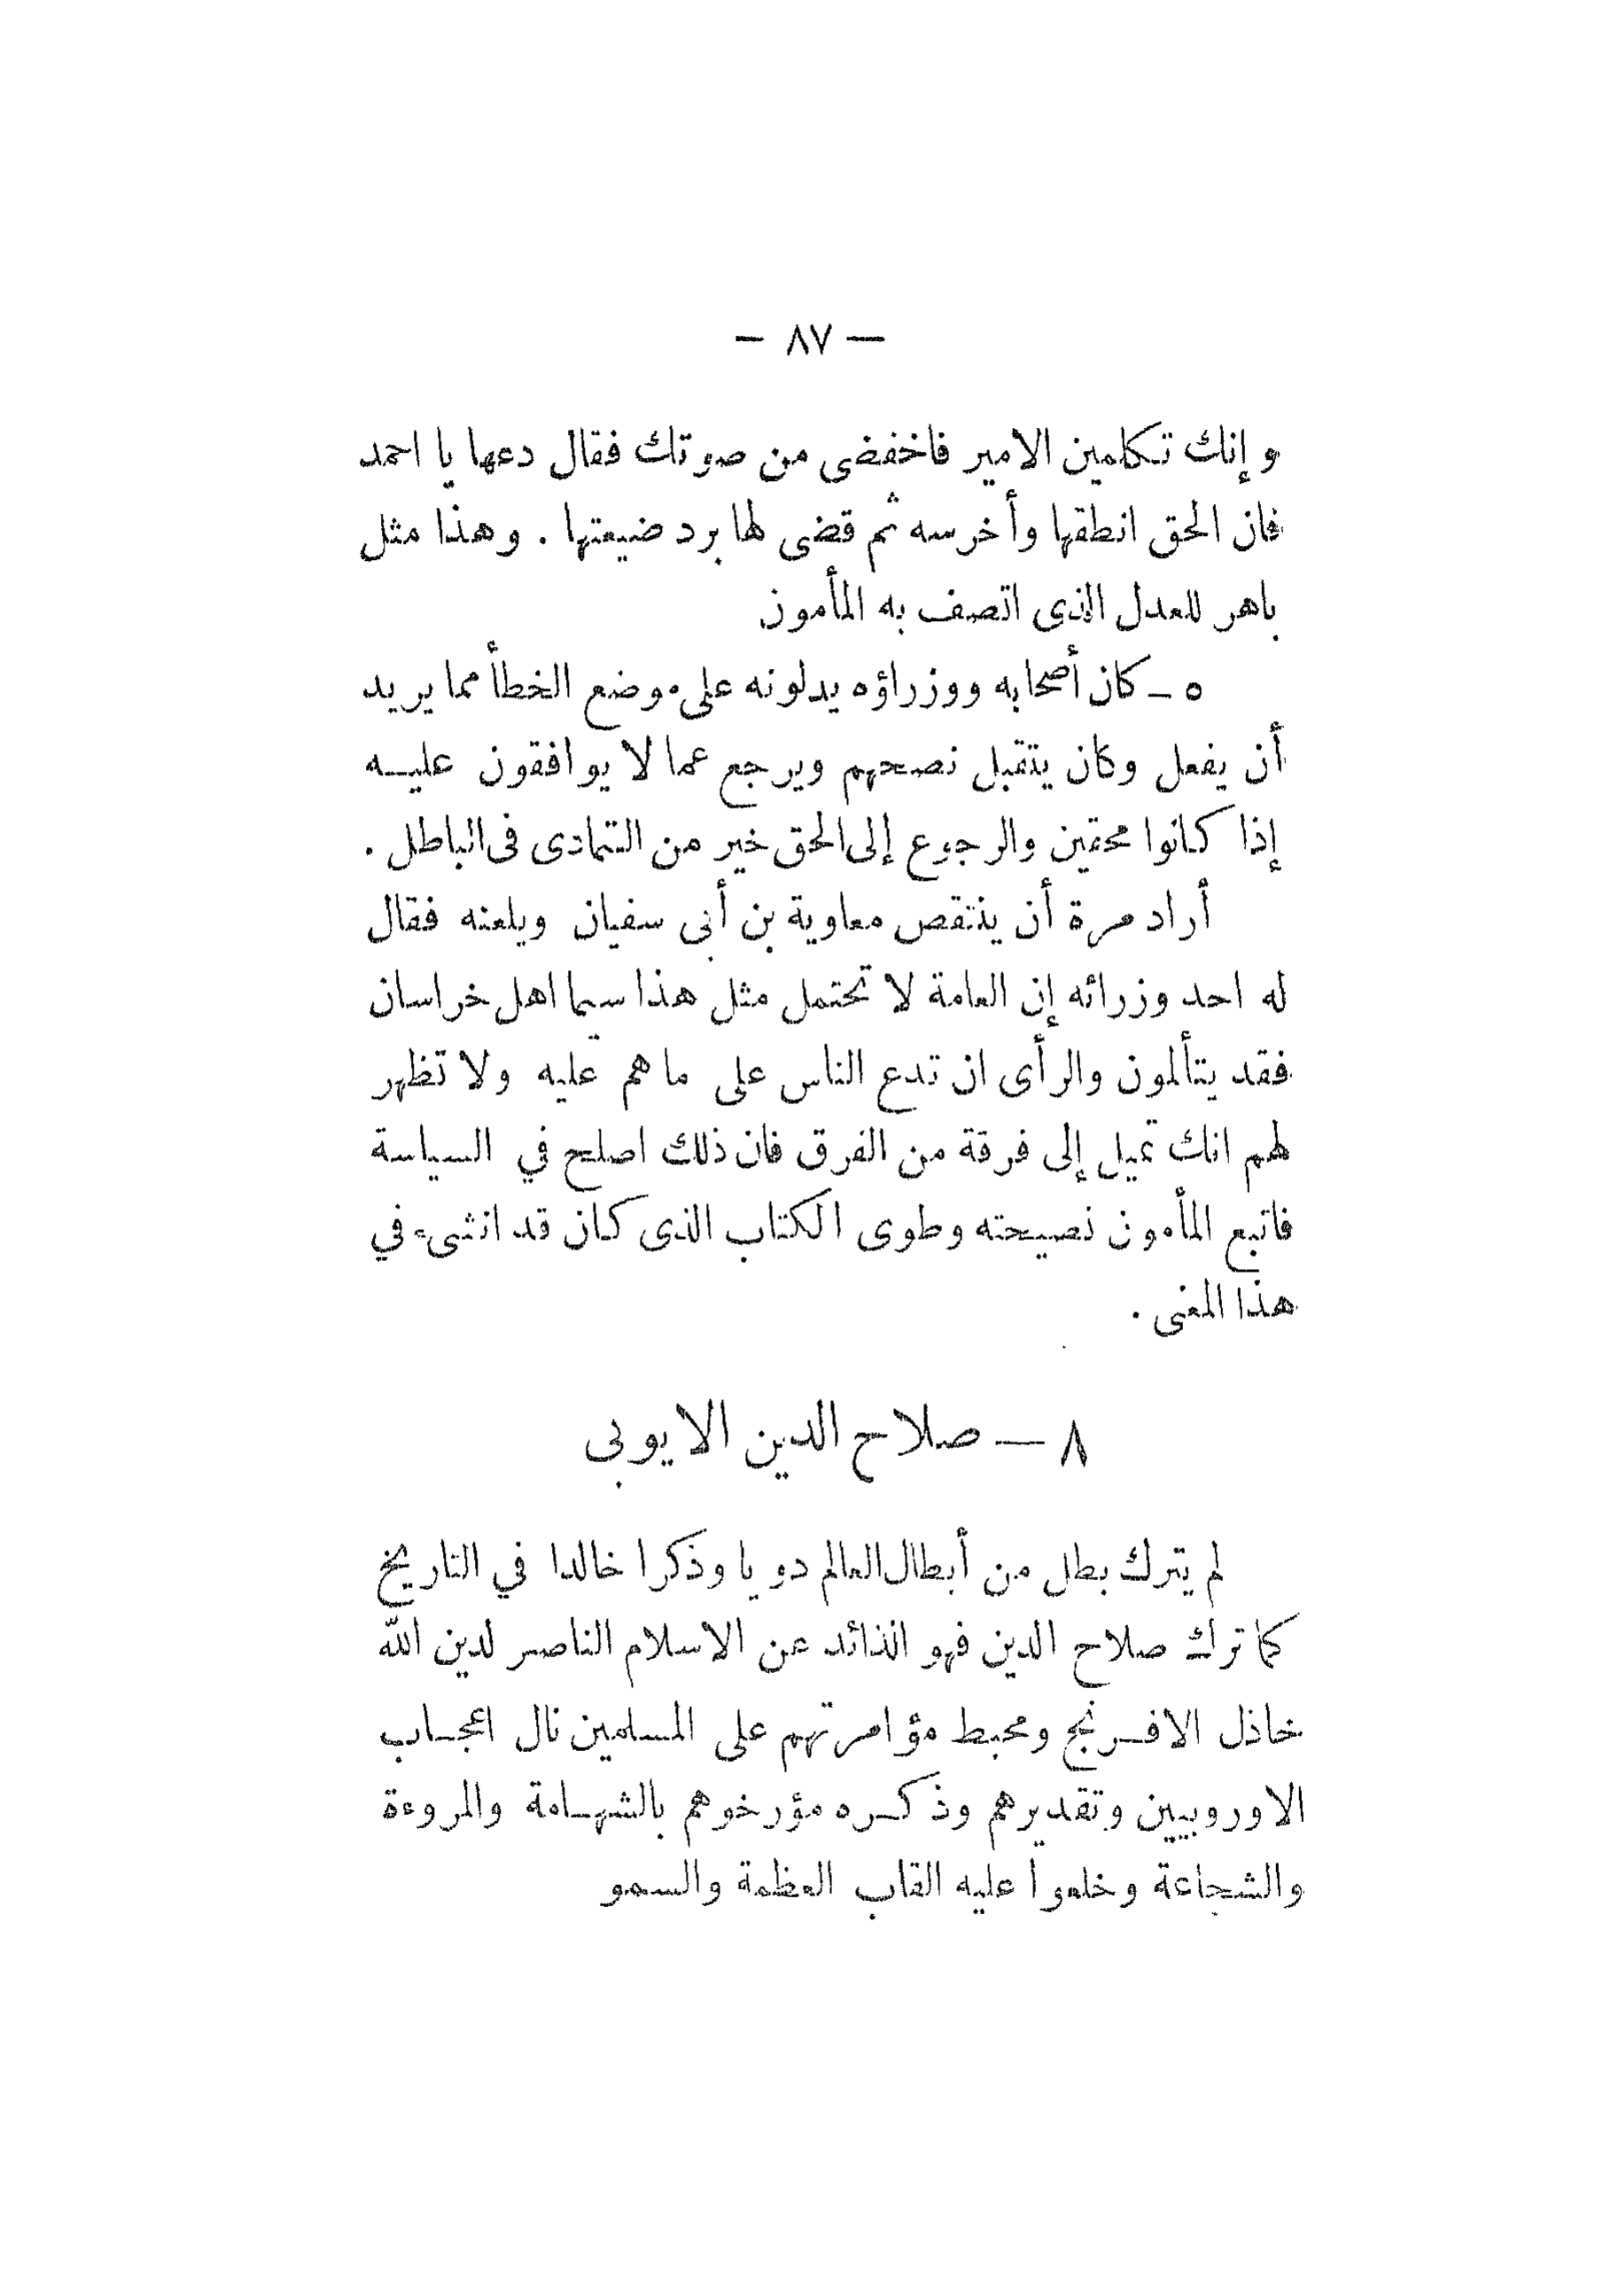 — ٨٧ —
وإنك تكلمين الامير فاخفضى من صوتك فقال دعها يا احمد
فان الحق انطقها وأخرسه ثم قضى لها برد ضيعتها . وهذا مثل
باهر للعدل الذى اتصف به المأمون
٥ – كان أصحابه ووزراؤه يدلونه على موضع الخطأ مما يريد
أن يفعل وكان يتقبل نصحهم ويرجع عما لا يوافقون عليـه
إذا كانوا محقين والرجوع إلى الحق خير من التمادى فى الباطل .
أراد مرة أن ينتقص معاوية بن أبى سفيان ويلعنه فقال
له احد وزرائه إن العامة لا تحتمل مثل هذا سيما اهل خراسان
فقد يتألمون والرأى ان تدع الناس على ما هم عليه ولا تظهر
لهم انك تميل إلى فرقة من الفرق فان ذلك اصلح في السياسة
فاتبع المأمون نصيحته وطوى الكتاب الذى كان قد انشىء في
هذا المعنى .
٨ — صلاح الدين الايوبى
لم يترك بطل من أبطال العالم دويا وذكرا خالدا في التاريخ
كما ترك صلاح الدين فهو الذائد عن الاسلام الناصر لدين الله
خاذل الافـرنج ومحبط مؤامرتهم على المسلمين نال اعجـاب
الاوروبيين وتقديرهم وذكـره مؤرخوهم بالشهـامة والمروءة
والشجاعة وخلعوا عليه القاب العظمة والسمو